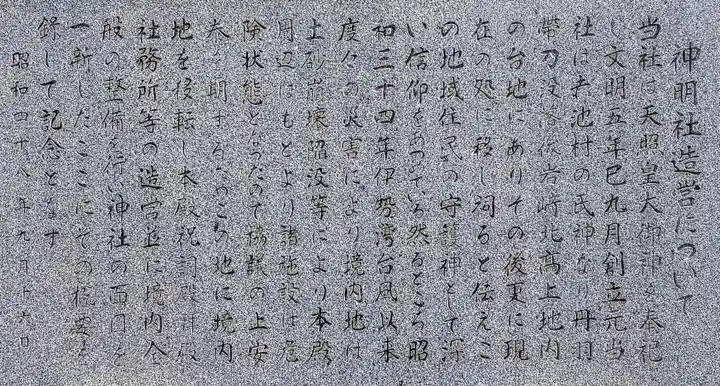 神明社造営について
当社は天照皇大御神を奉祀
し文明五年巳九月創立元当
社は赤池村の氏神なり丹羽
帯刀没落後岩崎北高上地内
の台地にありその後更に現
在の処に移し祠ると伝えこ
の地域住民の守護神として深
い信仰をあつめている然るところ昭
和三十四年伊勢湾台風以来
度々の災害により境内地は
土砂崩壊陥没等により本殿
周辺はもとより諸施設は危
険状態となったので協議の上安
泰を期するためこの地に境内
地を移転し本殿祝詞殿拝殿
社務所等の造営並に境内全
般の整備を行い神社の面目を
一新したここにその概要を
録して記念となす
昭和四十八年九月十六日